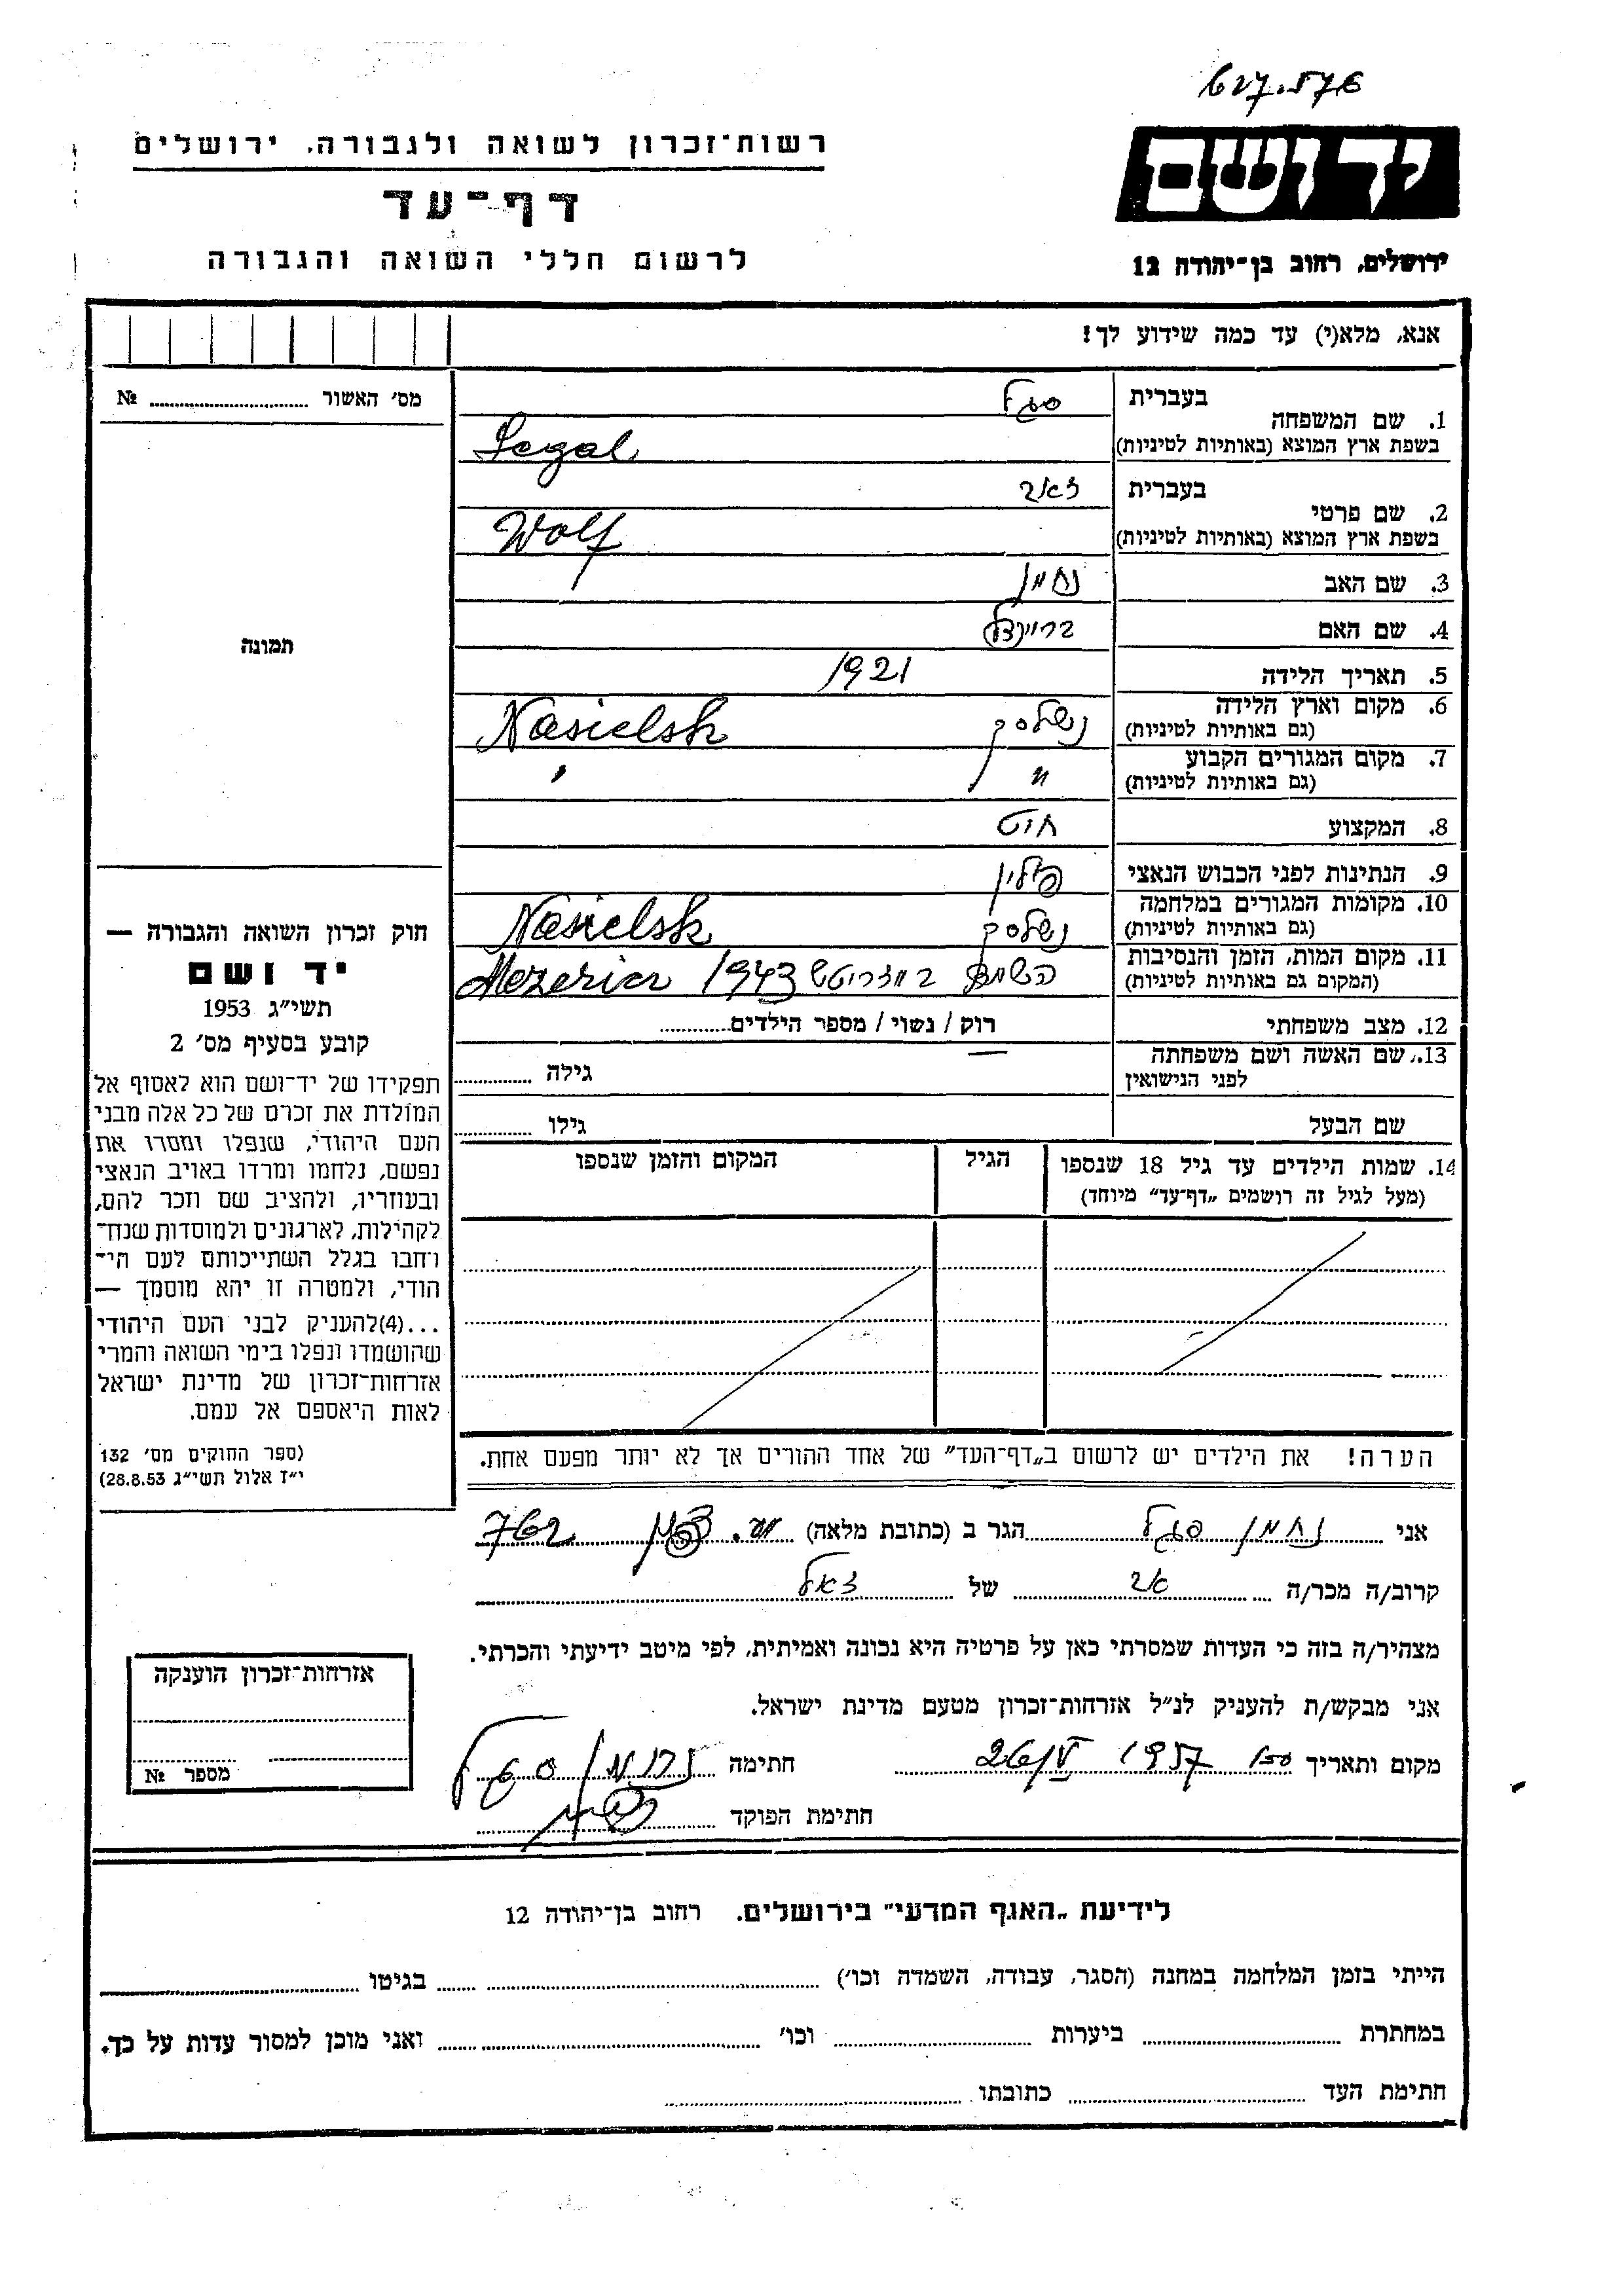 627.576
יד ושם
רשות־זכרון לשואה ולגבורה, ירושלים
דף־עד
לרשום חללי השואה והגבורה
ירושלים, רחוב בן־יהודה 12
אנא, מלא(י) עד כמה שידוע לך!
מס׳ האשור № ....................
בעברית סגל
1. שם המשפחה
בשפת ארץ המוצא (באותיות לטיניות) Segal
בעברית זאב
2. שם פרטי
בשפת ארץ המוצא (באותיות לטיניות) Wolf
3. שם האב נחמן
4. שם האם בריינדל
תמונה
5. תאריך הלידה 1921
6. מקום וארץ הלידה נשלסק Nasielsk
(גם באותיות לטיניות)
7. מקום המגורים הקבוע " "
(גם באותיות לטיניות)
8. המקצוע חיט
9. הנתינות לפני הכבוש הנאצי פולין
10. מקומות המגורים במלחמה נשלסק Nasielsk
(גם באותיות לטיניות)
11. מקום המות, הזמן והנסיבות במזריטש 1943 Mezerict
(המקום גם באותיות לטיניות)
12. מצב משפחתי רוק / נשוי / מספר הילדים............
13. שם האשה ושם משפחתה גילה ............
לפני הנישואין
שם הבעל גילו ............
14. שמות הילדים עד גיל 18 שנספו הגיל המקום והזמן שנספו
(מעל לגיל זה רושמים „דף־עד״ מיוחד)
הערה! את הילדים יש לרשום ב„דף־העד״ של אחד ההורים אך לא יותר מפעם אחת.
חוק זכרון השואה והגבורה —
יד ושם
תשי״ג 1953
קובע בסעיף מס׳ 2
תפקידו של יד־ושם הוא לאסוף אל
המולדת את זכרם של כל אלה מבני
העם היהודי, שנפלו ומסרו את
נפשם, נלחמו ומרדו באויב הנאצי
ובעוזריו, ולהציב שם וזכר להם,
לקהילות, לארגונים ולמוסדות שנח־
רחבו בגלל השתייכותם לעם הי־
הודי, ולמטרה זו יהא מוסמך —
...(4)להעניק לבני העם היהודי
שהושמדו ונפלו בימי השואה והמרי
אזרחות־זכרון של מדינת ישראל
לאות היאספם אל עמם.
(ספר החוקים מס׳ 132
י״ז אלול תשי״ג 28.8.53)
אני נחמן סגל הגר ב (כתובת מלאה)
קרוב/ה מכר/ה אב של
מצהיר/ה בזה כי העדות שמסרתי כאן על פרטיה היא נכונה ואמיתית, לפי מיטב ידיעתי והכרתי.
אני מבקש/ת להעניק לנ״ל אזרחות־זכרון מטעם מדינת ישראל.
מקום ותאריך 1957 26/V חתימה נחמן סגל
חתימת הפוקד
אזרחות־זכרון הוענקה
מספר №
לידיעת „האגף המדעי״ בירושלים, רחוב בן־יהודה 12
הייתי בזמן המלחמה במחנה (הסגר, עבודה, השמדה וכו׳) ............ בגיטו ............
במחתרת ............ ביערות ............ וכו׳ ............ ואני מוכן למסור עדות על כך.
חתימת העד ............ כתובתו ............